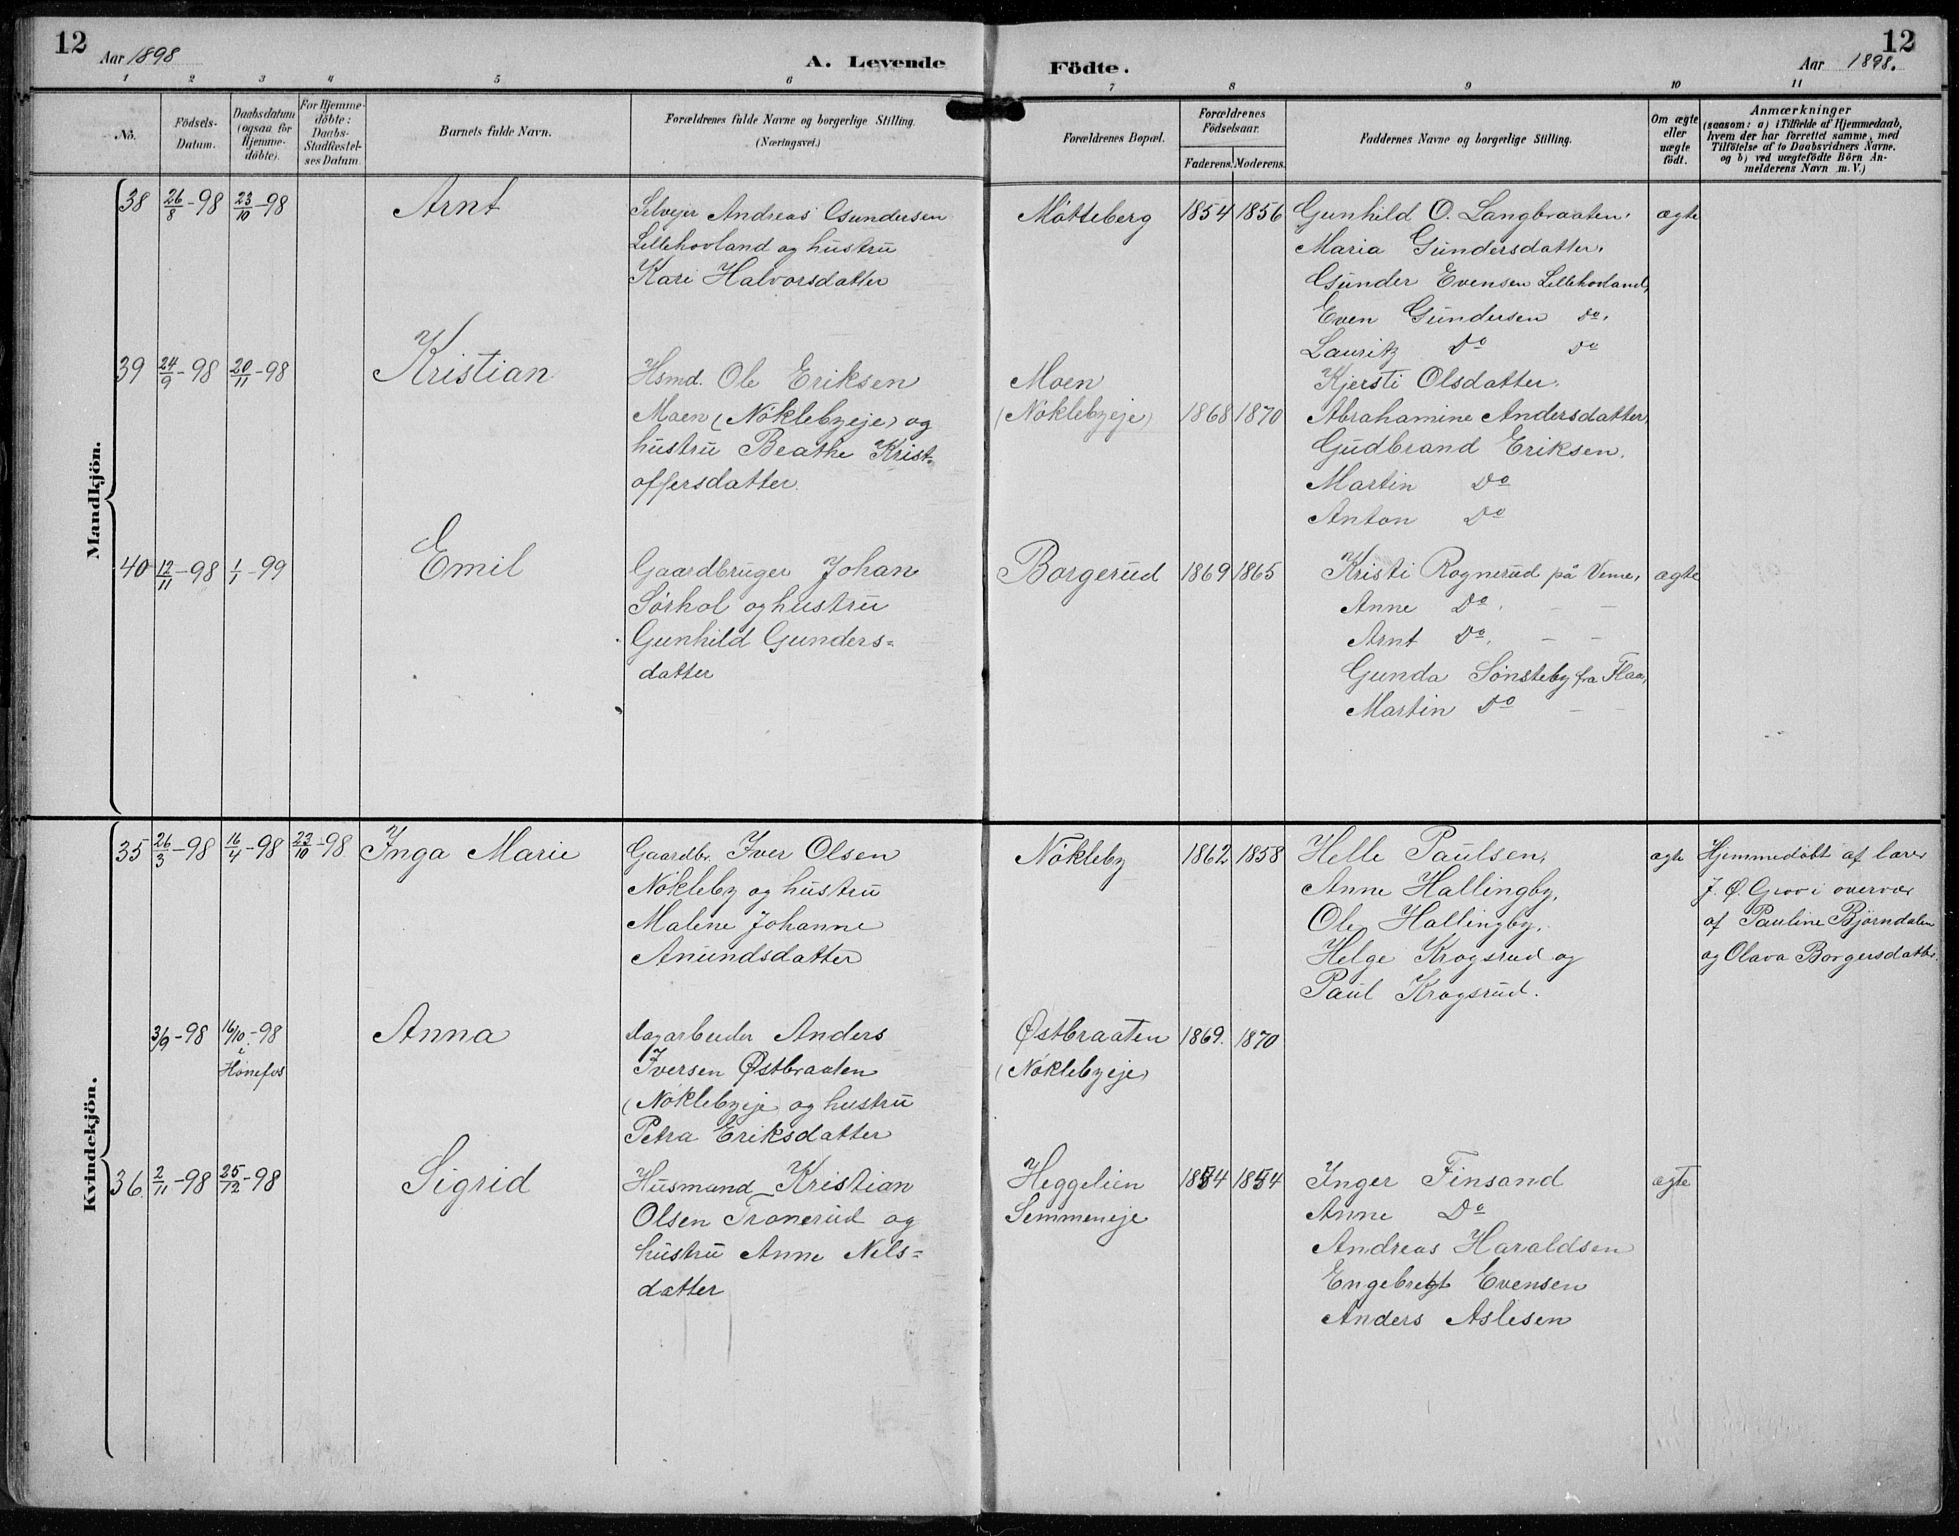 12
Aar 1898
A. Levende
Födte.
Aar 1898.
12
1 2 3 4 5 6 7 8 9 10 11
No.
Födsels-Datum.
Daabsdatum (ogsaa for Hjemmedöbte).
For Hjemmedöbte: Daabs-Stadfæstelses Datum.
Barnets fulde Navn.
Forældrenes fulde Navne og borgerlige Stilling.
(Næringsvei.)
Forældrenes Bopæl.
Forældrenes Födselsaar.
Faderens. Moderens.
Faddernes Navne og borgerlige Stilling.
Om ægte eller uægte födt.
Anmærkninger
(saasom: a) i Tilfælde af Hjemmedaab,
hvem der har forrettet samme, med
Tilföielse af to Daabsvidners Navne.
og b) ved uægtefödte Börn An-
melderens Navn m. V.)
Mandkjön.
38 26/8-98 23/10-98 Arnt
Selveier Andreas Gundersen
Lillehovland og hustru
Kari Halvorsdatter
Møtteberg 1854 1856
Gunhild O. Langbraaten.
Maria Gundersdatter.
Gunder Evensen Lillehovland,
Even Gundersen do.
Lauritz Do do
ægte
39 24/9-98 20/11-98 Kristian
Hsmd. Ole Eriksen
Moen (Nökleby eje) og
hustru Beathe Krist-
offersdatter
Moen
(Nöklebyeje) 1868 1870
Kjersti Olsdatter.
Abrahamine Andersdatter,
Gudbrand Eriksen.
Martin Do
Anton Do
40 12/11-98 1/1-99 Emil
Gaardbruger Johan
Sørhol og hustru
Gunhild Gunders-
datter
Borgerud 1869 1865
Kristi Rognerud på Veme,
Anne Do. — —
Arnt Do. — —
Gunda Sønsteby fra Flaa,
Martin Do — —
ægte
Kvindekjön.
35 26/3-98 16/4-98 23/10-98 Inga Marie
Gaardbr. Iver Olsen
Nökleby og hustru
Malene Johanne
Anundsdatter
Nökleby 1862 1858
Helle Paulsen,
Anne Hallingby,
Ole Hallingby,
Helge Krogsrud og
Paul Krogsrud.
ægte
Hjemmedöbt af lærer
J. Ø. Groo i overvær
af Pauline Björndalen
og Olava Borgersdatter.
3/9-98 16/10-98
i
Hönefos
Anna
dagarbeider Anders
Iversen Østbraaten
(Nöklebyeje) og hustru
Petra Eriksdatter
Østbraaten 1869. 1870
(Nöklebyeje)
36. 2/11-98 25/12-98 Sigrid
Husmand Kristian
Olsen Tronerud og
hustru Anne Nils-
datter
Heggelien 1854 1854
Semmeneje
Inger Finsand
Anne Do
Andreas Haraldsen
Engebregt Evensen
Anders Aslesen
ægte